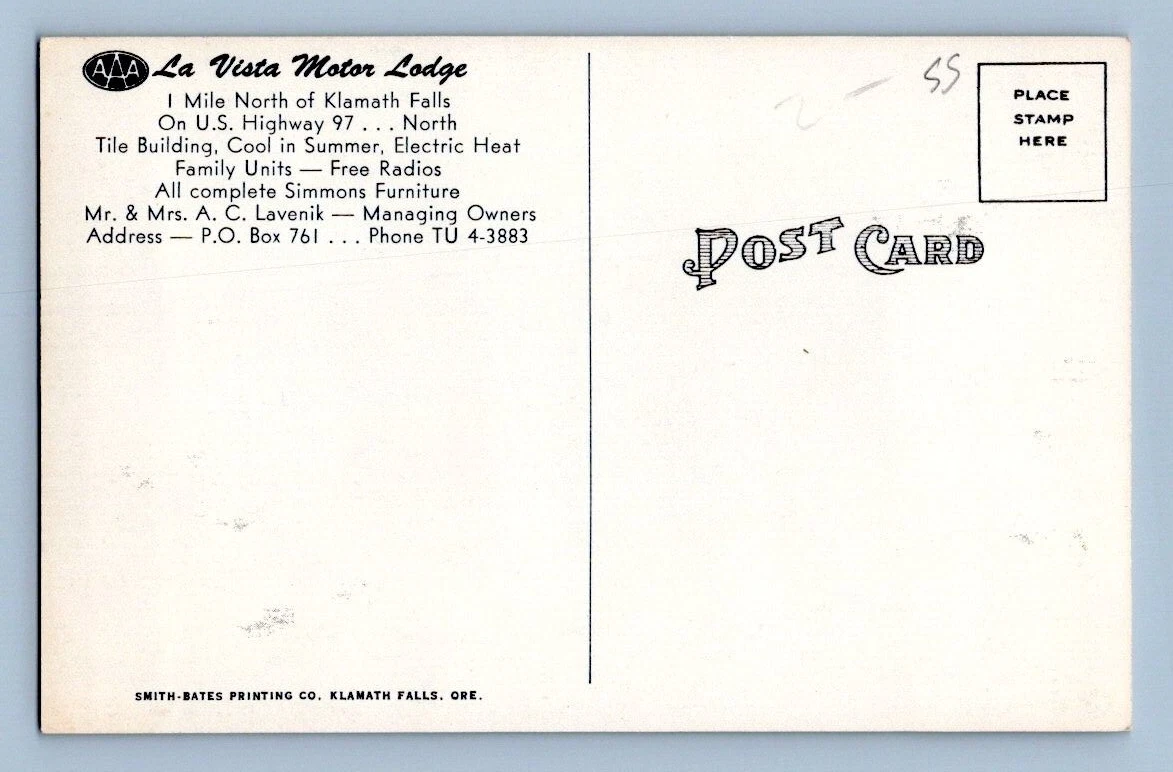 AAA La Vista Motor Lodge
1 Mile North of Klamath Falls
On U.S. Highway 97 . . . North
Tile Building, Cool in Summer, Electric Heat
Family Units — Free Radios
All complete Simmons Furniture
Mr. & Mrs. A. C. Lavenik — Managing Owners
Address — P.O. Box 761 . . . Phone TU 4-3883
SMITH-BATES PRINTING CO. KLAMATH FALLS. ORE.
2 — 55
PLACE
STAMP
HERE
POST CARD